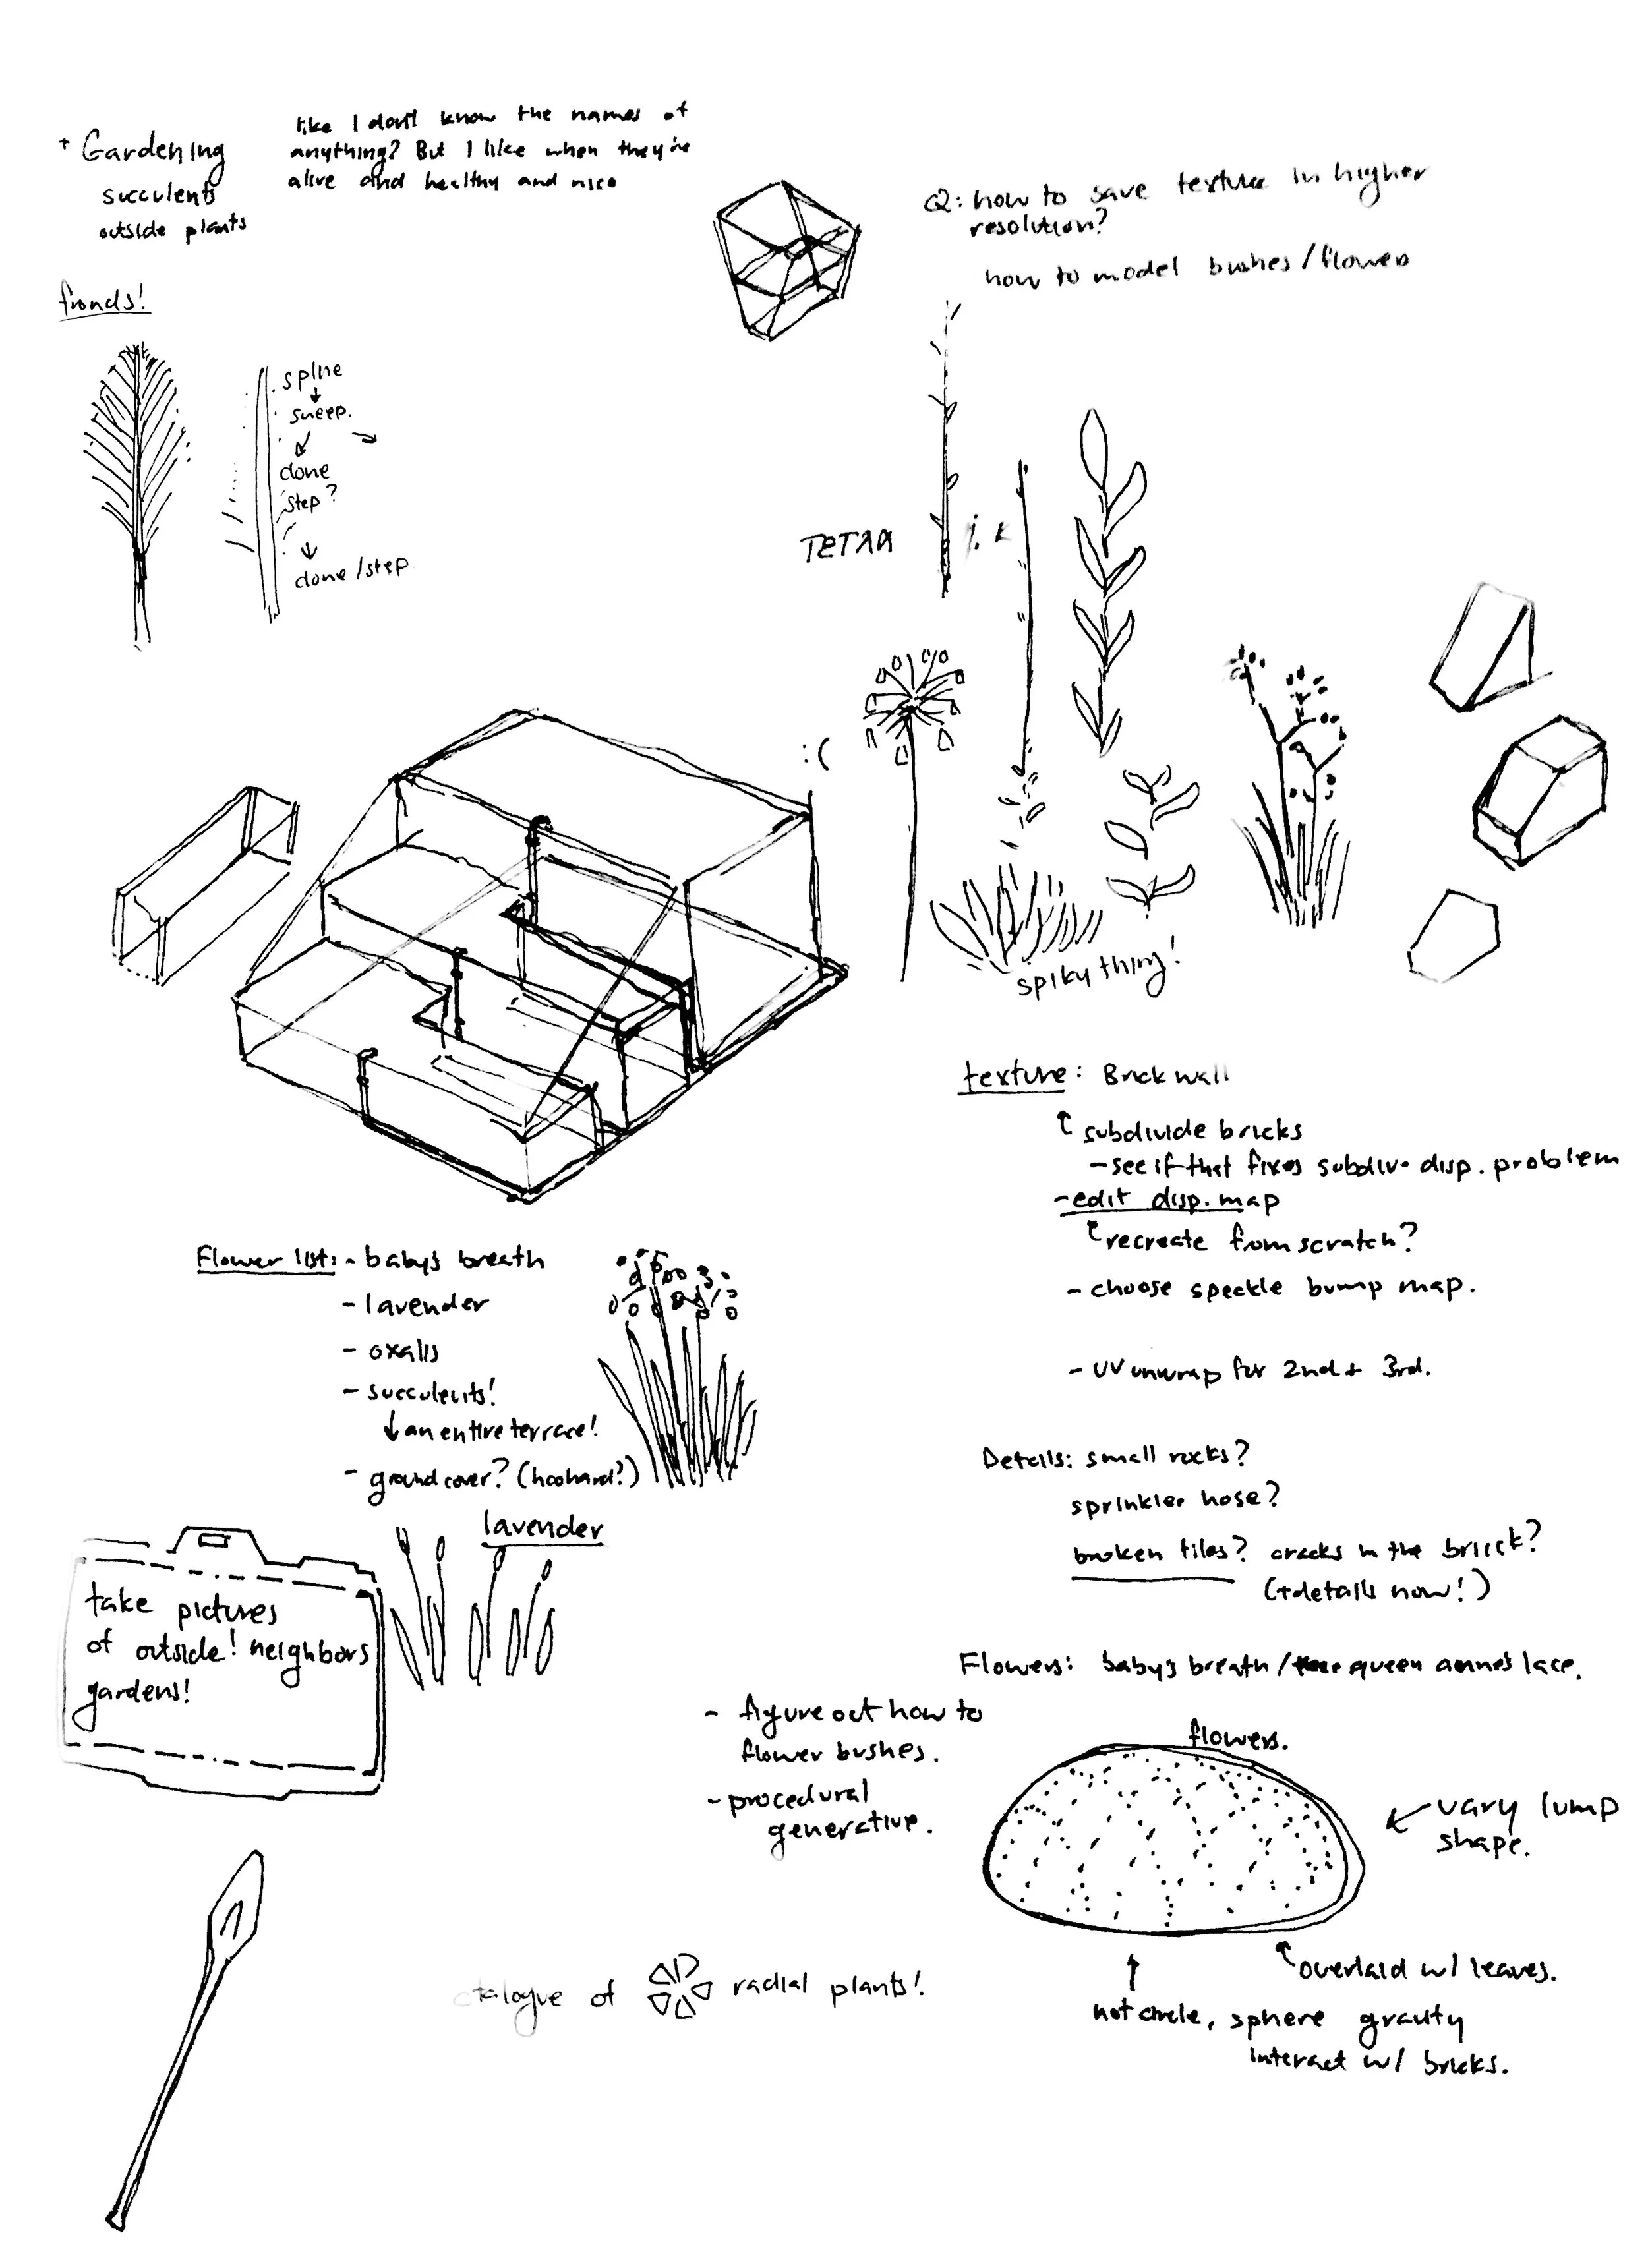 + Gardening
succulents
outside plants
like I don't know the names of
anything? But I like when they're
alive and healthy and nice
Q: how to save texture in higher
resolution?
how to model bushes/flowers
fronds!
spine
sweep.
clone
step?
clone/step
TETRA
:(
spiky thing!
texture: Brick wall
subdivide bricks
- see if that fixes subdiv. disp. problem
- edit disp. map
recreate from scratch?
- choose speckle bump map.
- UV unwrap for 2nd + 3rd.
Flower list: - baby's breath
- lavender
- oxalis
- succulents!
an entire terrace!
- ground cover?
lavender
Details: small rocks?
sprinkler hose?
broken tiles? cracks in the brick?
(+details now!)
take pictures
of outside! neighbors
gardens!
Flowers: baby's breath/ queen anne's lace.
- figure out how to
flower bushes.
- procedural
generative.
flowers.
vary lump
shape.
overlaid w/ leaves.
not circle, sphere gravity
interact w/ bricks.
catalogue of radial plants!